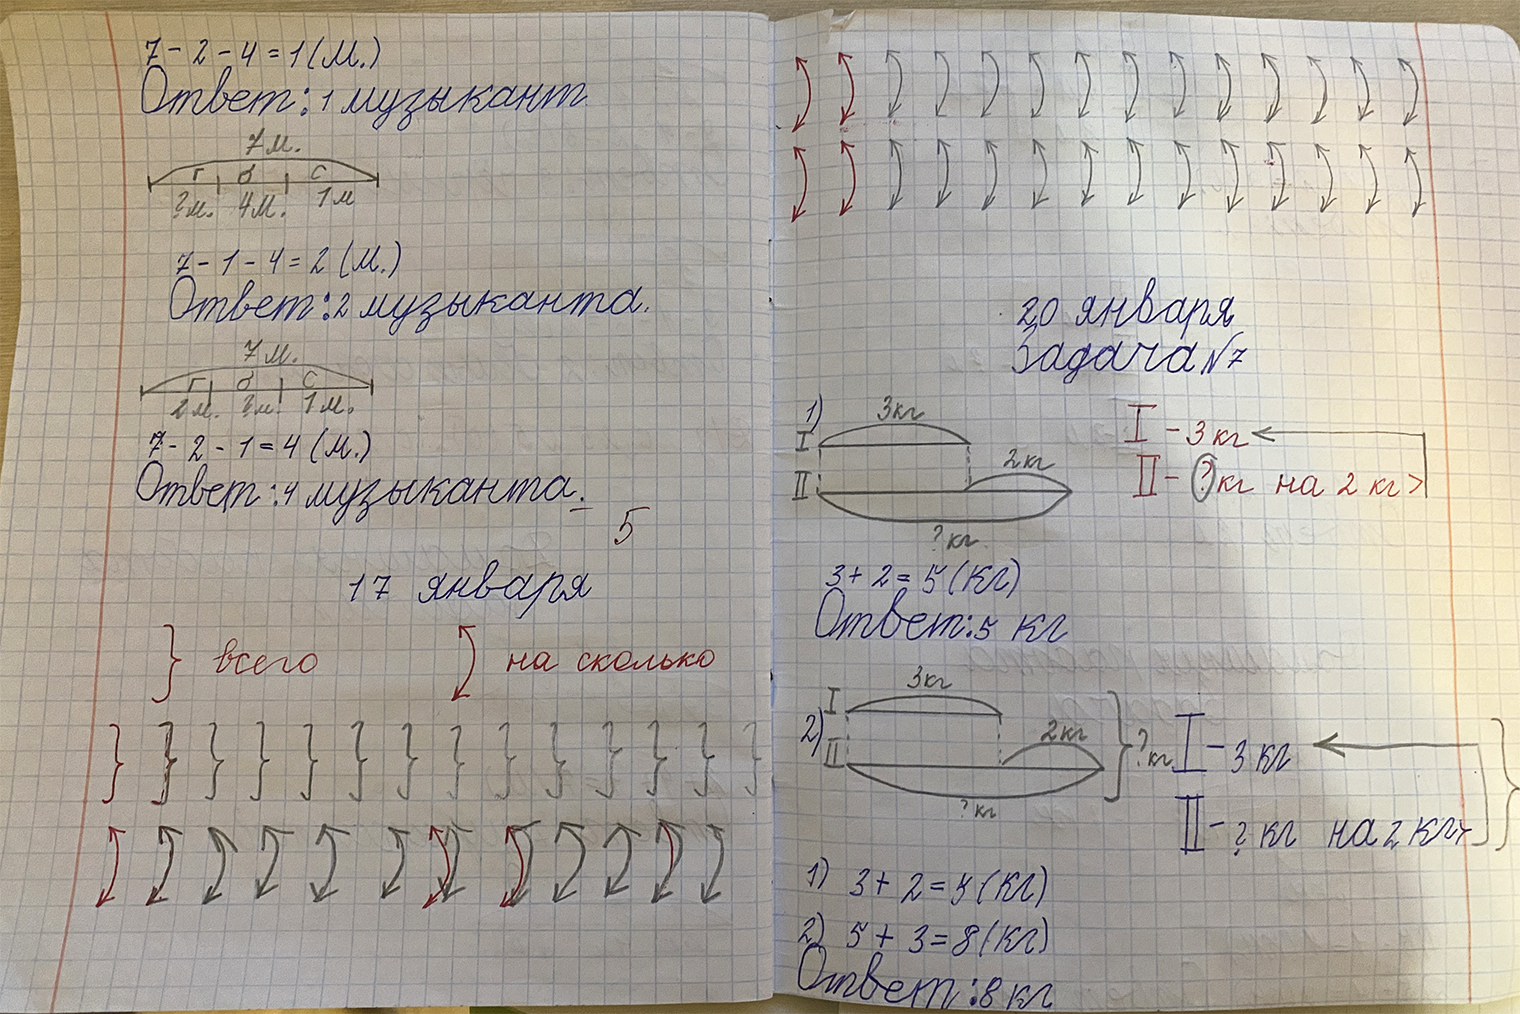 7 - 2 - 4 = 1 (м.)
Ответ: 1 музыкант
7 м.
г д с
? м. 4 м. 1 м
7 - 1 - 4 = 2 (м.)
Ответ: 2 музыканта.
7 м.
г д с
2 м. ? м. 1 м.
7 - 2 - 1 = 4 (м.)
Ответ: 4 музыканта.
5
17 января
} всего на сколько
20 января
Задача №7
1)
3 кг
I
2 кг
II
? кг
I - 3 кг
II - ? кг на 2 кг >
3 + 2 = 5 (кг)
Ответ: 5 кг
2)
3 кг
I
2 кг
II
? кг
? кг
I - 3 кг
II - ? кг на 2 кг >
1) 3 + 2 = 5 (кг)
2) 5 + 3 = 8 (кг)
Ответ: 8 кг